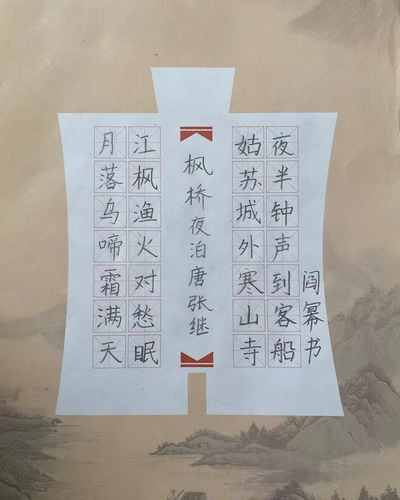 月落乌啼霜满天
江枫渔火对愁眠
枫桥夜泊唐张继
姑苏城外寒山寺
夜半钟声到客船
阎幂书